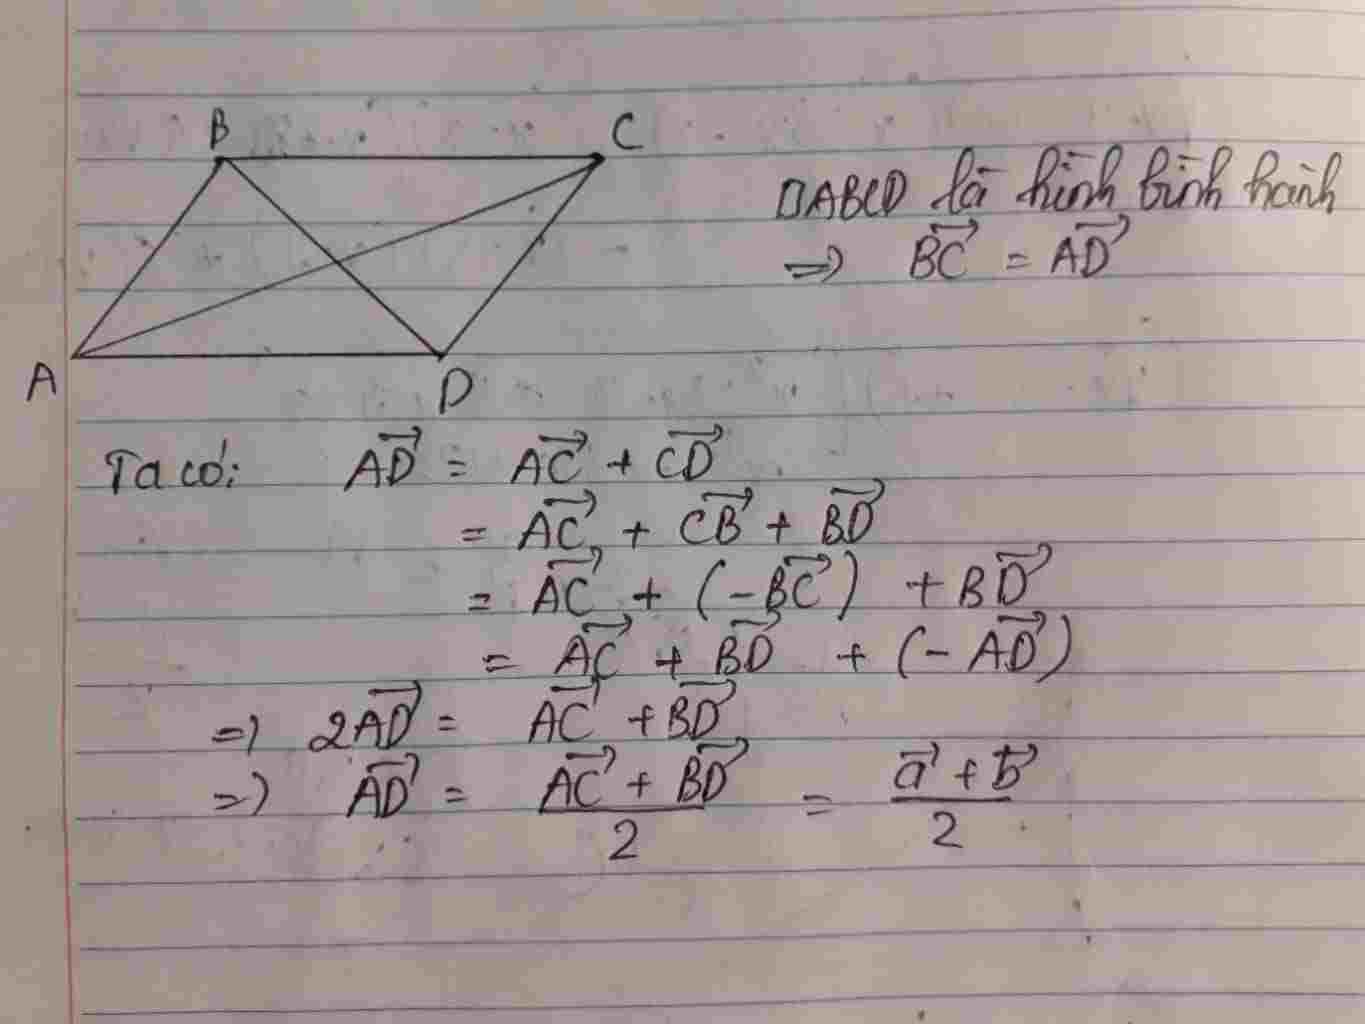 B
C
A
D
▯ABCD là hình bình hành
=> \overrightarrow{BC} = \overrightarrow{AD}
Ta có: \overrightarrow{AD} = \overrightarrow{AC} + \overrightarrow{CD}
= \overrightarrow{AC} + \overrightarrow{CB} + \overrightarrow{BD}
= \overrightarrow{AC} + (-\overrightarrow{BC}) + \overrightarrow{BD}
= \overrightarrow{AC} + \overrightarrow{BD} + (-\overrightarrow{AD})
=> 2\overrightarrow{AD} = \overrightarrow{AC} + \overrightarrow{BD}
=> \overrightarrow{AD} = \frac{\overrightarrow{AC} + \overrightarrow{BD}}{2} = \frac{\overrightarrow{a} + \overrightarrow{b}}{2}